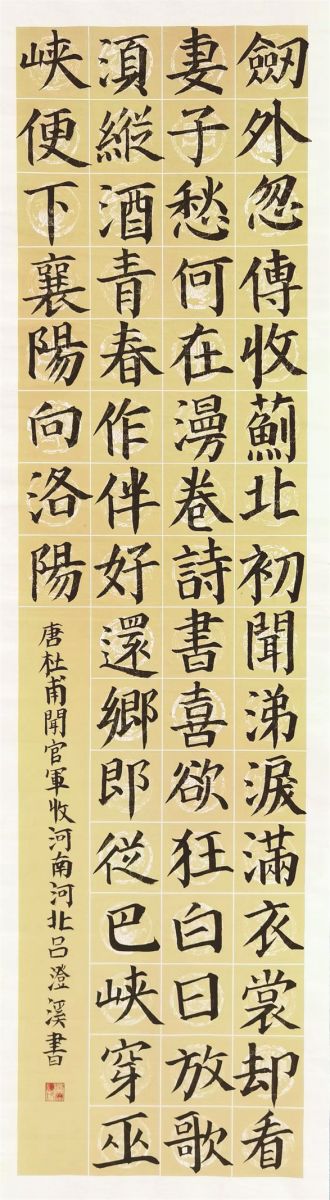 劒外忽傳收薊北初聞涕淚滿衣裳却看
妻子愁何在漫卷詩書喜欲狂白日放歌
須縱酒青春作伴好還鄉即從巴峽穿巫
峽便下襄陽向洛陽
唐杜甫聞官軍收河南河北呂澄溪書